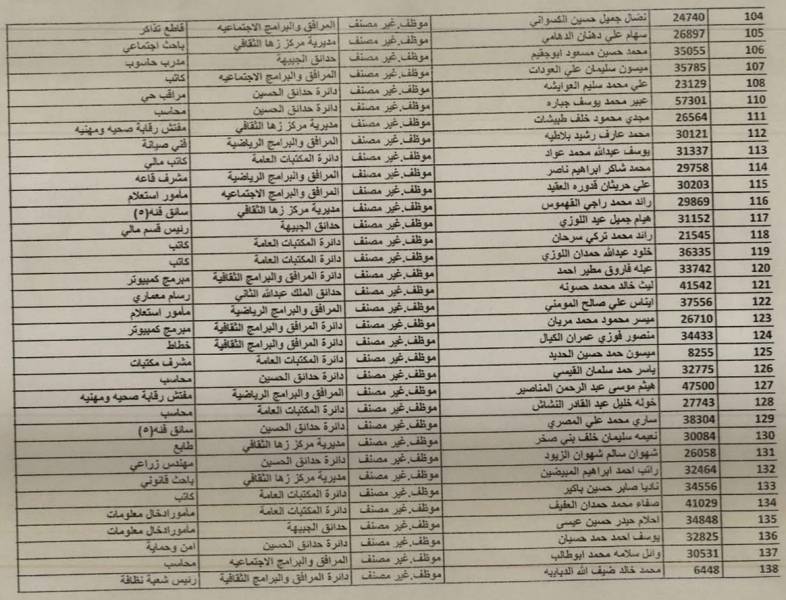 104 24740 نضال جميل حسين الكسواني موظف.غير مصنف المرافق والبرامج الاجتماعيه قاطع تذاكر
105 26897 سهام علي دهنان الدهامي موظف.غير مصنف مديرية مركز زها الثقافي باحث اجتماعي
106 35055 محمد حسين مسعود ابوجقيم موظف.غير مصنف حدائق الجبيهة مدرب حاسوب
107 35785 ميسون سليمان علي العودات موظف.غير مصنف المرافق والبرامج الاجتماعيه كاتب
108 23129 علي محمد سليم العوايشه موظف.غير مصنف دائرة حدائق الحسين مراقب حي
110 57301 عبير محمد يوسف جباره موظف.غير مصنف دائرة حدائق الحسين محاسب
111 26564 مجدي محمود خلف طبيشات موظف.غير مصنف مديرية مركز زها الثقافي مفتش رقابة صحيه ومهنيه
112 30121 محمد عارف رشيد بلاطيه موظف.غير مصنف المرافق والبرامج الرياضية فني صيانة
113 31337 يوسف عبدالله محمد عواد موظف.غير مصنف دائرة المكتبات العامة كاتب مالي
114 29758 محمد شاكر ابراهيم ناصر موظف.غير مصنف المرافق والبرامج الرياضية مشرف قاعه
115 30203 علي حريثان قدوره العقيد موظف.غير مصنف المرافق والبرامج الاجتماعيه مأمور استعلام
116 29869 رائد محمد راجي القهموس موظف.غير مصنف مديرية مركز زها الثقافي سائق فئه(٥)
117 31152 هيام جميل عيد اللوزي موظف.غير مصنف حدائق الجبيهة رئيس قسم مالي
118 21545 رائد محمد تركي سرحان موظف.غير مصنف دائرة المكتبات العامة كاتب
119 36335 خلود عبدالله حمدان اللوزي موظف.غير مصنف دائرة المكتبات العامة كاتب
120 33742 عبله فاروق مطير احمد موظف.غير مصنف دائرة المرافق والبرامج الثقافية مبرمج كمبيوتر
121 41542 ليث خالد محمد حسونه موظف.غير مصنف حدائق الملك عبدالله الثاني رسام معماري
122 37556 ايناس علي صالح المومني موظف.غير مصنف المرافق والبرامج الرياضية مأمور استعلام
123 26710 ميسر محمود محمد مريان موظف.غير مصنف دائرة المرافق والبرامج الثقافية مبرمج كمبيوتر
124 34433 منصور فوزي عمران الكيال موظف.غير مصنف دائرة المرافق والبرامج الثقافية خطاط
125 8255 ميسون حمد حسين الحديد موظف.غير مصنف دائرة المكتبات العامة مشرف مكتبات
126 32775 ياسر حمد سلمان القيسي موظف.غير مصنف دائرة حدائق الحسين محاسب
127 47500 هيثم موسى عبد الرحمن المناصير موظف.غير مصنف المرافق والبرامج الرياضية مفتش رقابة صحيه ومهنيه
128 27743 خوله خليل عبد القادر النشاش موظف.غير مصنف دائرة المكتبات العامة محاسب
129 38304 ساري محمد علي المصري موظف.غير مصنف دائرة حدائق الحسين سائق فئه(٥)
130 30084 نعيمه سليمان خلف بني صخر موظف.غير مصنف مديرية مركز زها الثقافي طابع
131 26058 شهوان سالم شهوان الزيود موظف.غير مصنف دائرة حدائق الحسين مهندس زراعي
132 32464 راتب احمد ابراهيم المبيضين موظف.غير مصنف مديرية مركز زها الثقافي باحث قانوني
133 34556 ناديا صابر حسين باكير موظف.غير مصنف دائرة المكتبات العامة كاتب
134 41029 صفاء محمد حمدان العفيف موظف.غير مصنف دائرة المكتبات العامة مأمورادخال معلومات
135 34848 احلام حيدر حسين عيسى موظف.غير مصنف حدائق الجبيهة مأمورادخال معلومات
136 32825 يوسف احمد حمد حسبان موظف.غير مصنف دائرة حدائق الحسين امن وحماية
137 30531 وائل سلامه محمد ابوطالب موظف.غير مصنف المرافق والبرامج الاجتماعيه محاسب
138 6448 محمد خالد ضيف الله الدبايبه موظف.غير مصنف دائرة المرافق والبرامج الثقافية رئيس شعبة نظافة